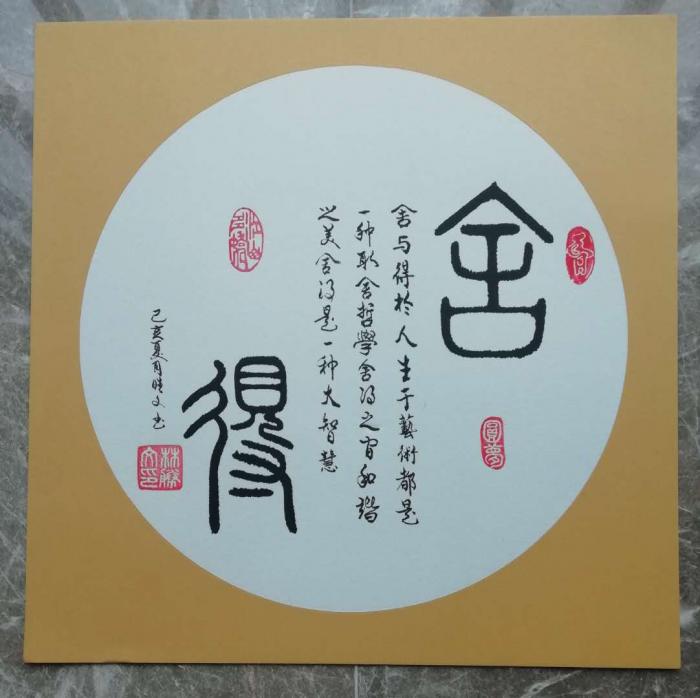 舍
舍与得於人生于藝術都是
一种取舍哲學舍得之间和諧
之美舍得是一种大智慧
得
己亥夏月勝文书
圓夢
林勝
文印